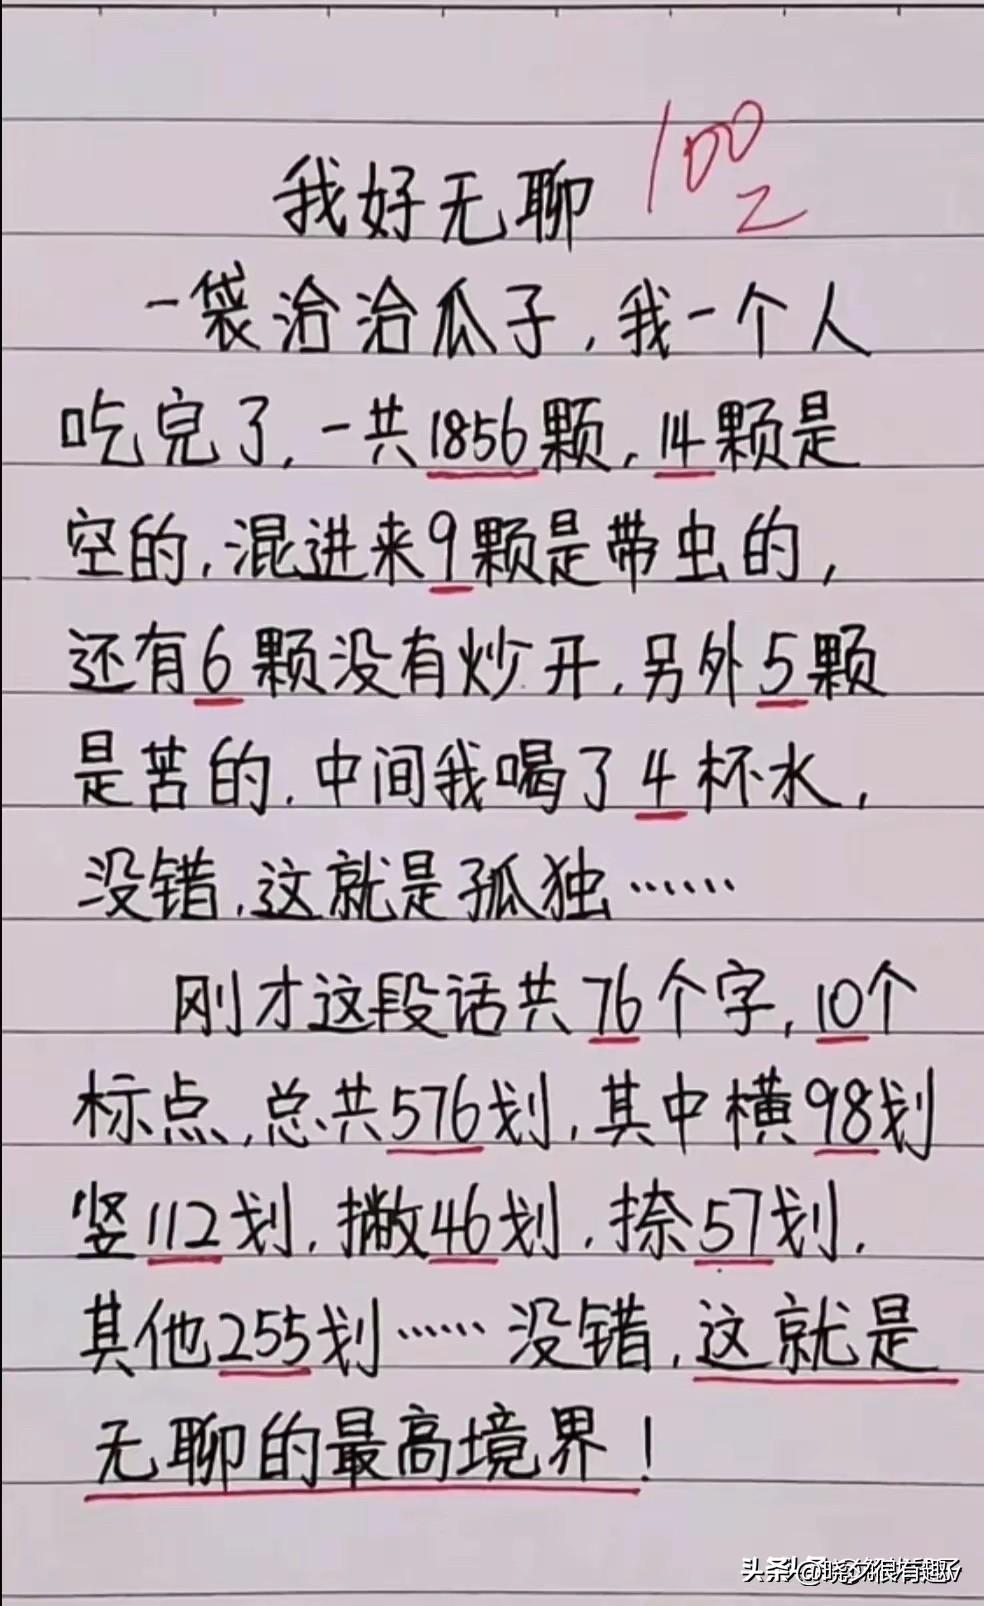 100
我好无聊
一袋洽洽瓜子,我一个人
吃完了,一共1856颗,14颗是
空的,混进来9颗是带虫的,
还有6颗没有炒开,另外5颗
是苦的,中间我喝了4杯水,
没错,这就是孤独……
刚才这段话共76个字,10个
标点,总共576划,其中横98划
竖112划,撇46划,捺57划,
其他255划……没错,这就是
无聊的最高境界!
头条